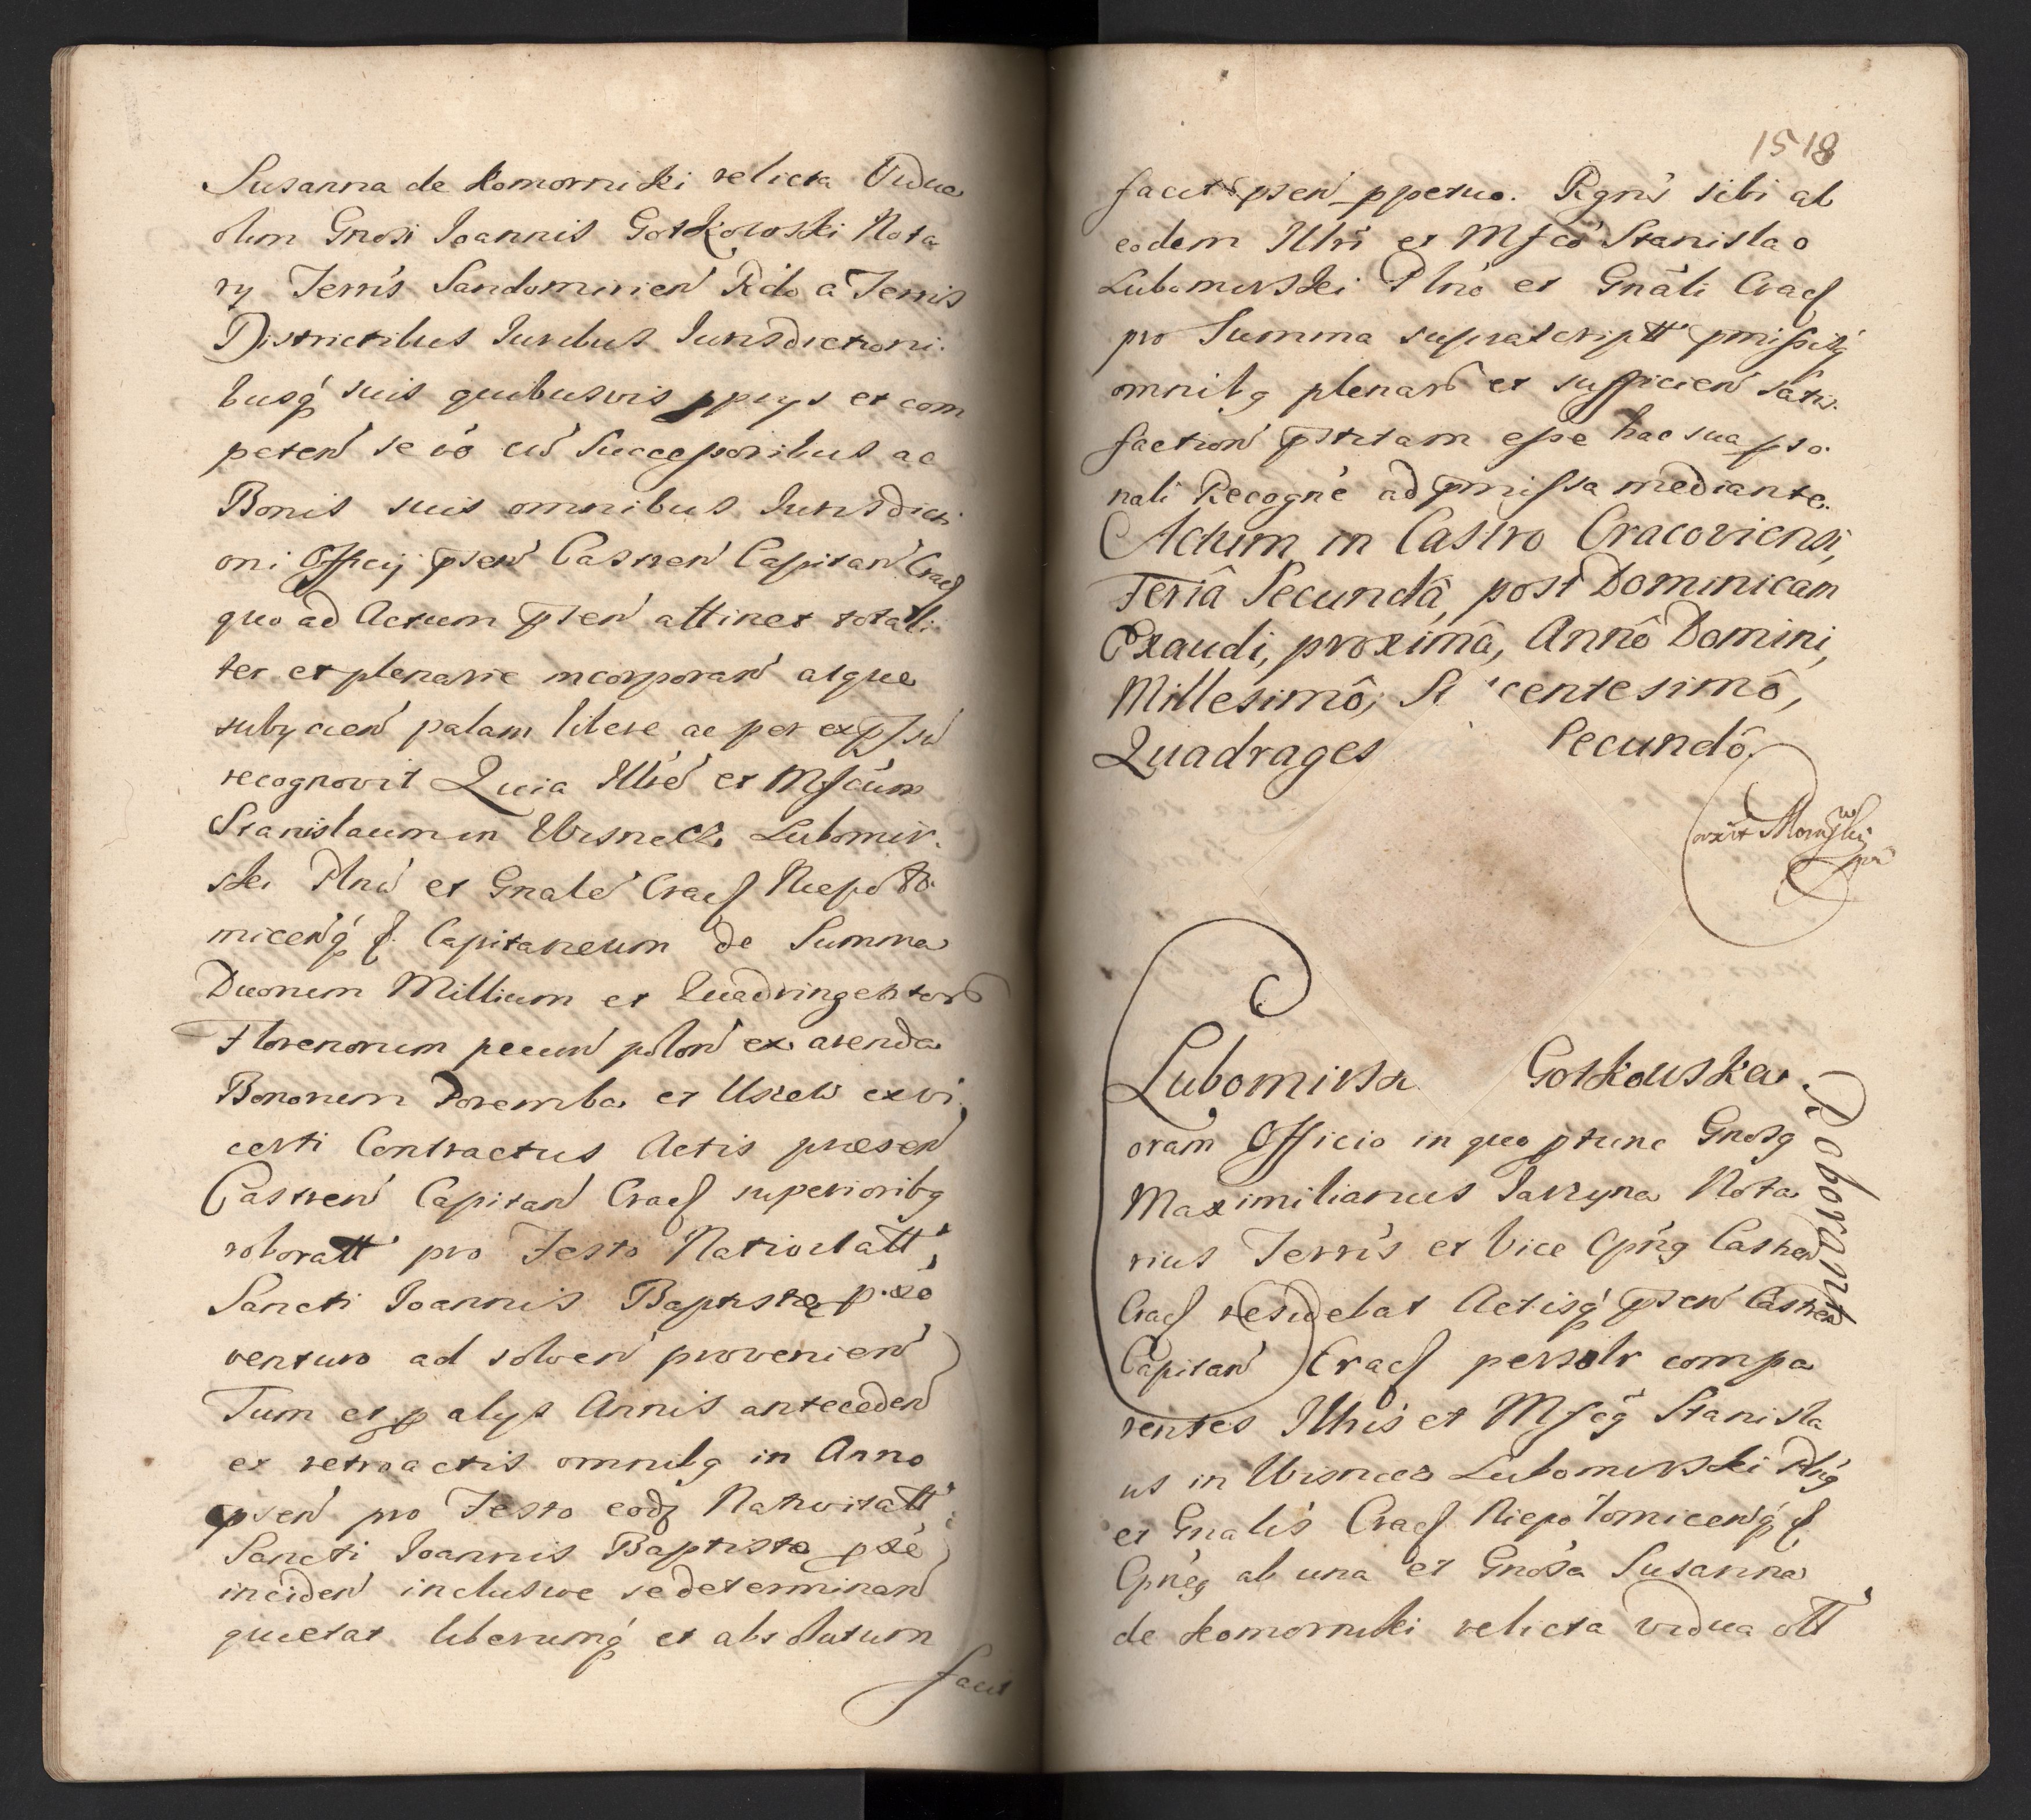 Susanna de Komorniki relicta Vidua
olim Gnosi Joannis Gotkowski Nota
ry Terris Sandomirien Rdo a Terris
Districtibus Juribus Jurisdictioni.
busq suis quibusvis pprys et com
peten se vo cu Successoribus ac
Bonis suis omnibus Jurisdicti
oni Officij psen Castren Capitan Cracs
quo ad Actum psen attinet totali
ter et plenarie incorporan atque
subycien palam libere ac per expssu
recognovit Quia Illre et Mfcum
Stanislaum in Wisnicz Lubomir.
ski Plnu et Gnale Cracs Niepolo.
micenq s. Capitaneum de Summa
Duorum Millium et Quadringentor
Florenorum pecun polon ex arenda
Bonorum Poremba et Uscew ex vi
certi Contractus Actis præsen
Castren Capitan Cracs superioribq
roboratt pro Festo Nativitatt
Sancti Joannis Baptistæ pxo
venturo ad solven provenien
Tum et p alys Annis anteceden
et retroactis omnibq in Anno
psen pro Festo eodz Nativitatt
Sancti Joannis Baptista pxe
inciden inclusive se determinan
quietat liberumq et absolutum
facit
1518
facit psen pperuo. Rgnis sibi ab
eodem Illri et Mfco Stanislao
Lubomirski Plno et Gnali Cracs
pro Summa suprascriptt pmissisq
omnibq plenar et sufficien satis.
faction pstitam esse hac sua pso.
nali Recogne ad pmissa mediante.
Actum in Castro Cracoviensi,
Feriâ Secundâ, post Dominicam
Exaudi, proximâ, Annô Domini,
Millesimô, centesimô,
Quadrages Secundô.
Lubomirski Gotkowska
Roboran
oram Officio in quo ptunc Gnosq
Maximilianus Jarzyna Nota
rius Terris et Vice Cpnq Castren
Cracs residebat Actisq psen Castren
Capitan Cracs persolr compa
rentes Illris et Mfcq Stanisla
us in Wisnicz Lubomirski Plnq
et Gnalis Cracs Niepolomicenq s.
Cpneq ab una et Gnosa Susanna
de Komorniki relicta vidua oli